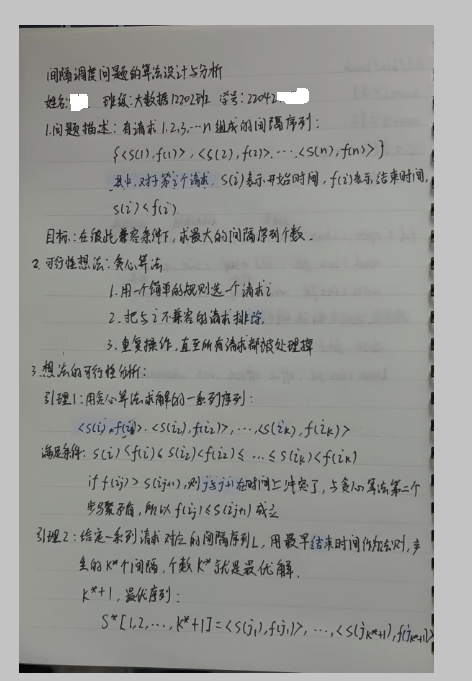 间隔调度问题的算法设计与分析
姓名: 班级:大数据12202班 学号:22042
1.问题描述:有请求1,2,3,…n组成的间隔序列:
{<s(1),f(1)>,<s(2),f(2)>,…,<s(n),f(n)>}
其中,对于第i个请求,s(i)表示开始时间,f(i)表示结束时间,
s(i)<f(i).
目标:在彼此兼容条件下,求最大的间隔序列个数.
2.可行性想法:贪心算法
1.用一个简单的规则选一个请求i
2.把与i不兼容的请求排除.
3.重复操作,直至所有请求都被处理掉
3.想法的可行性分析:
引理1:用贪心算法求解的一系列序列:
<s(i₁),f(i₁)>,<s(i₂),f(i₂)>,…,<s(iₖ),f(iₖ)>
满足条件: s(i₁)<f(i₁)≤s(i₂)<f(i₂)≤…≤s(iₖ)<f(iₖ)
if f(ij)>s(ij+1),则j与j+1在时间上冲突了,与贪心算法第二个
步骤矛盾,所以f(ij)≤s(ij+1)成立
引理2:给定一系列请求对应的间隔序列L,用最早结束时间作为规则,产
生的K*个间隔,个数K*就是最优解.
K*+1,最优序列:
S*[1,2,…,K*+1]=<s(j₁),f(j₁)>,…,<s(jK*+1),f(jK*+1)>